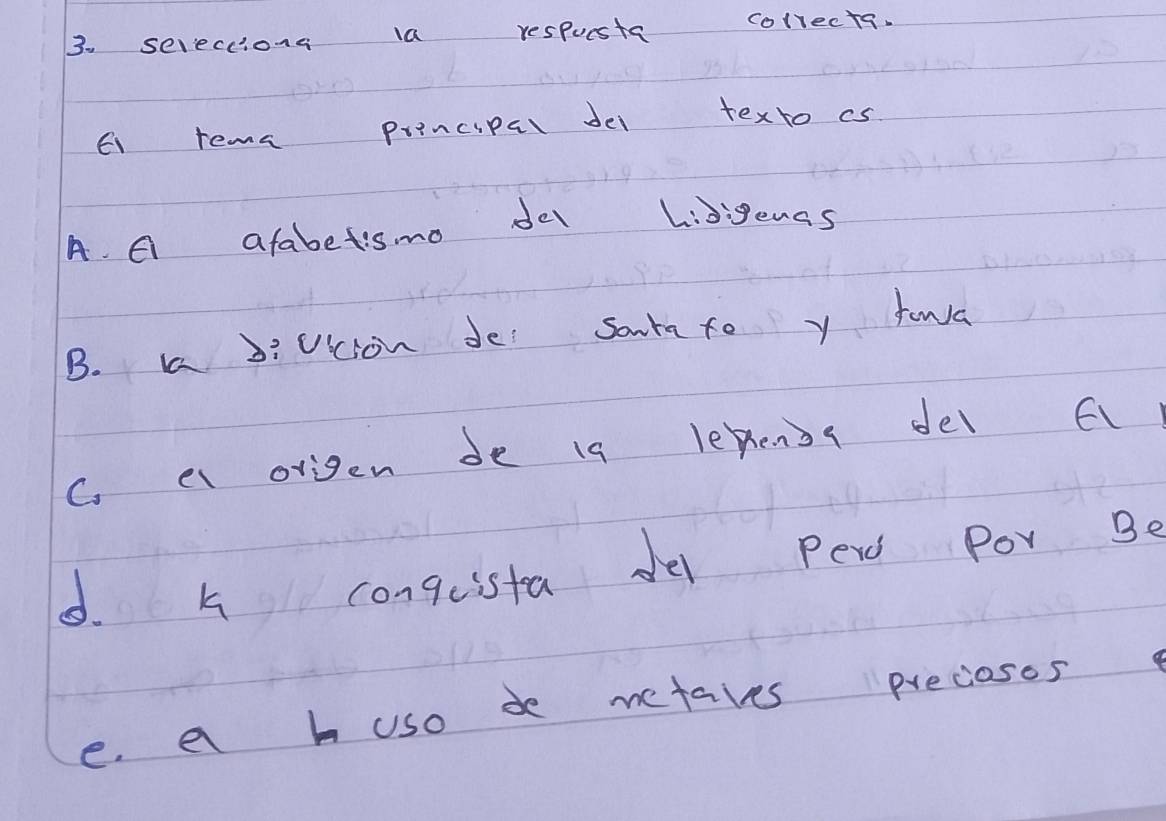 3. selecciona la respuesta correcta.
El tema principal del texto es.
A. El afabetismo del hidigenas
B. la divición de: Santa fe y tunja
C. el origen de la leyenda del El
d. la conquista del Perú Por Be
e. el uso de metales preciosos e